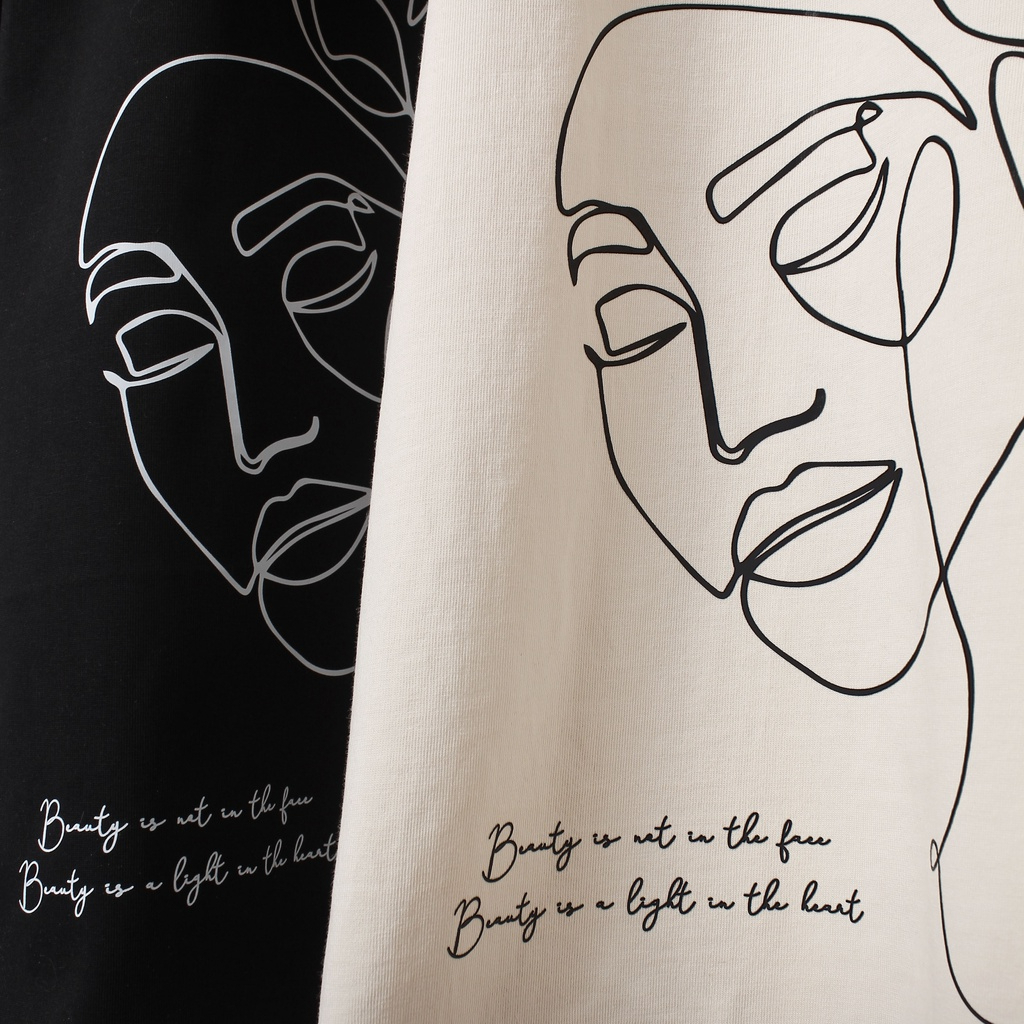 Beauty is not in the face
Beauty is a light in the heart
Beauty is not in the face
Beauty is a light in the heart